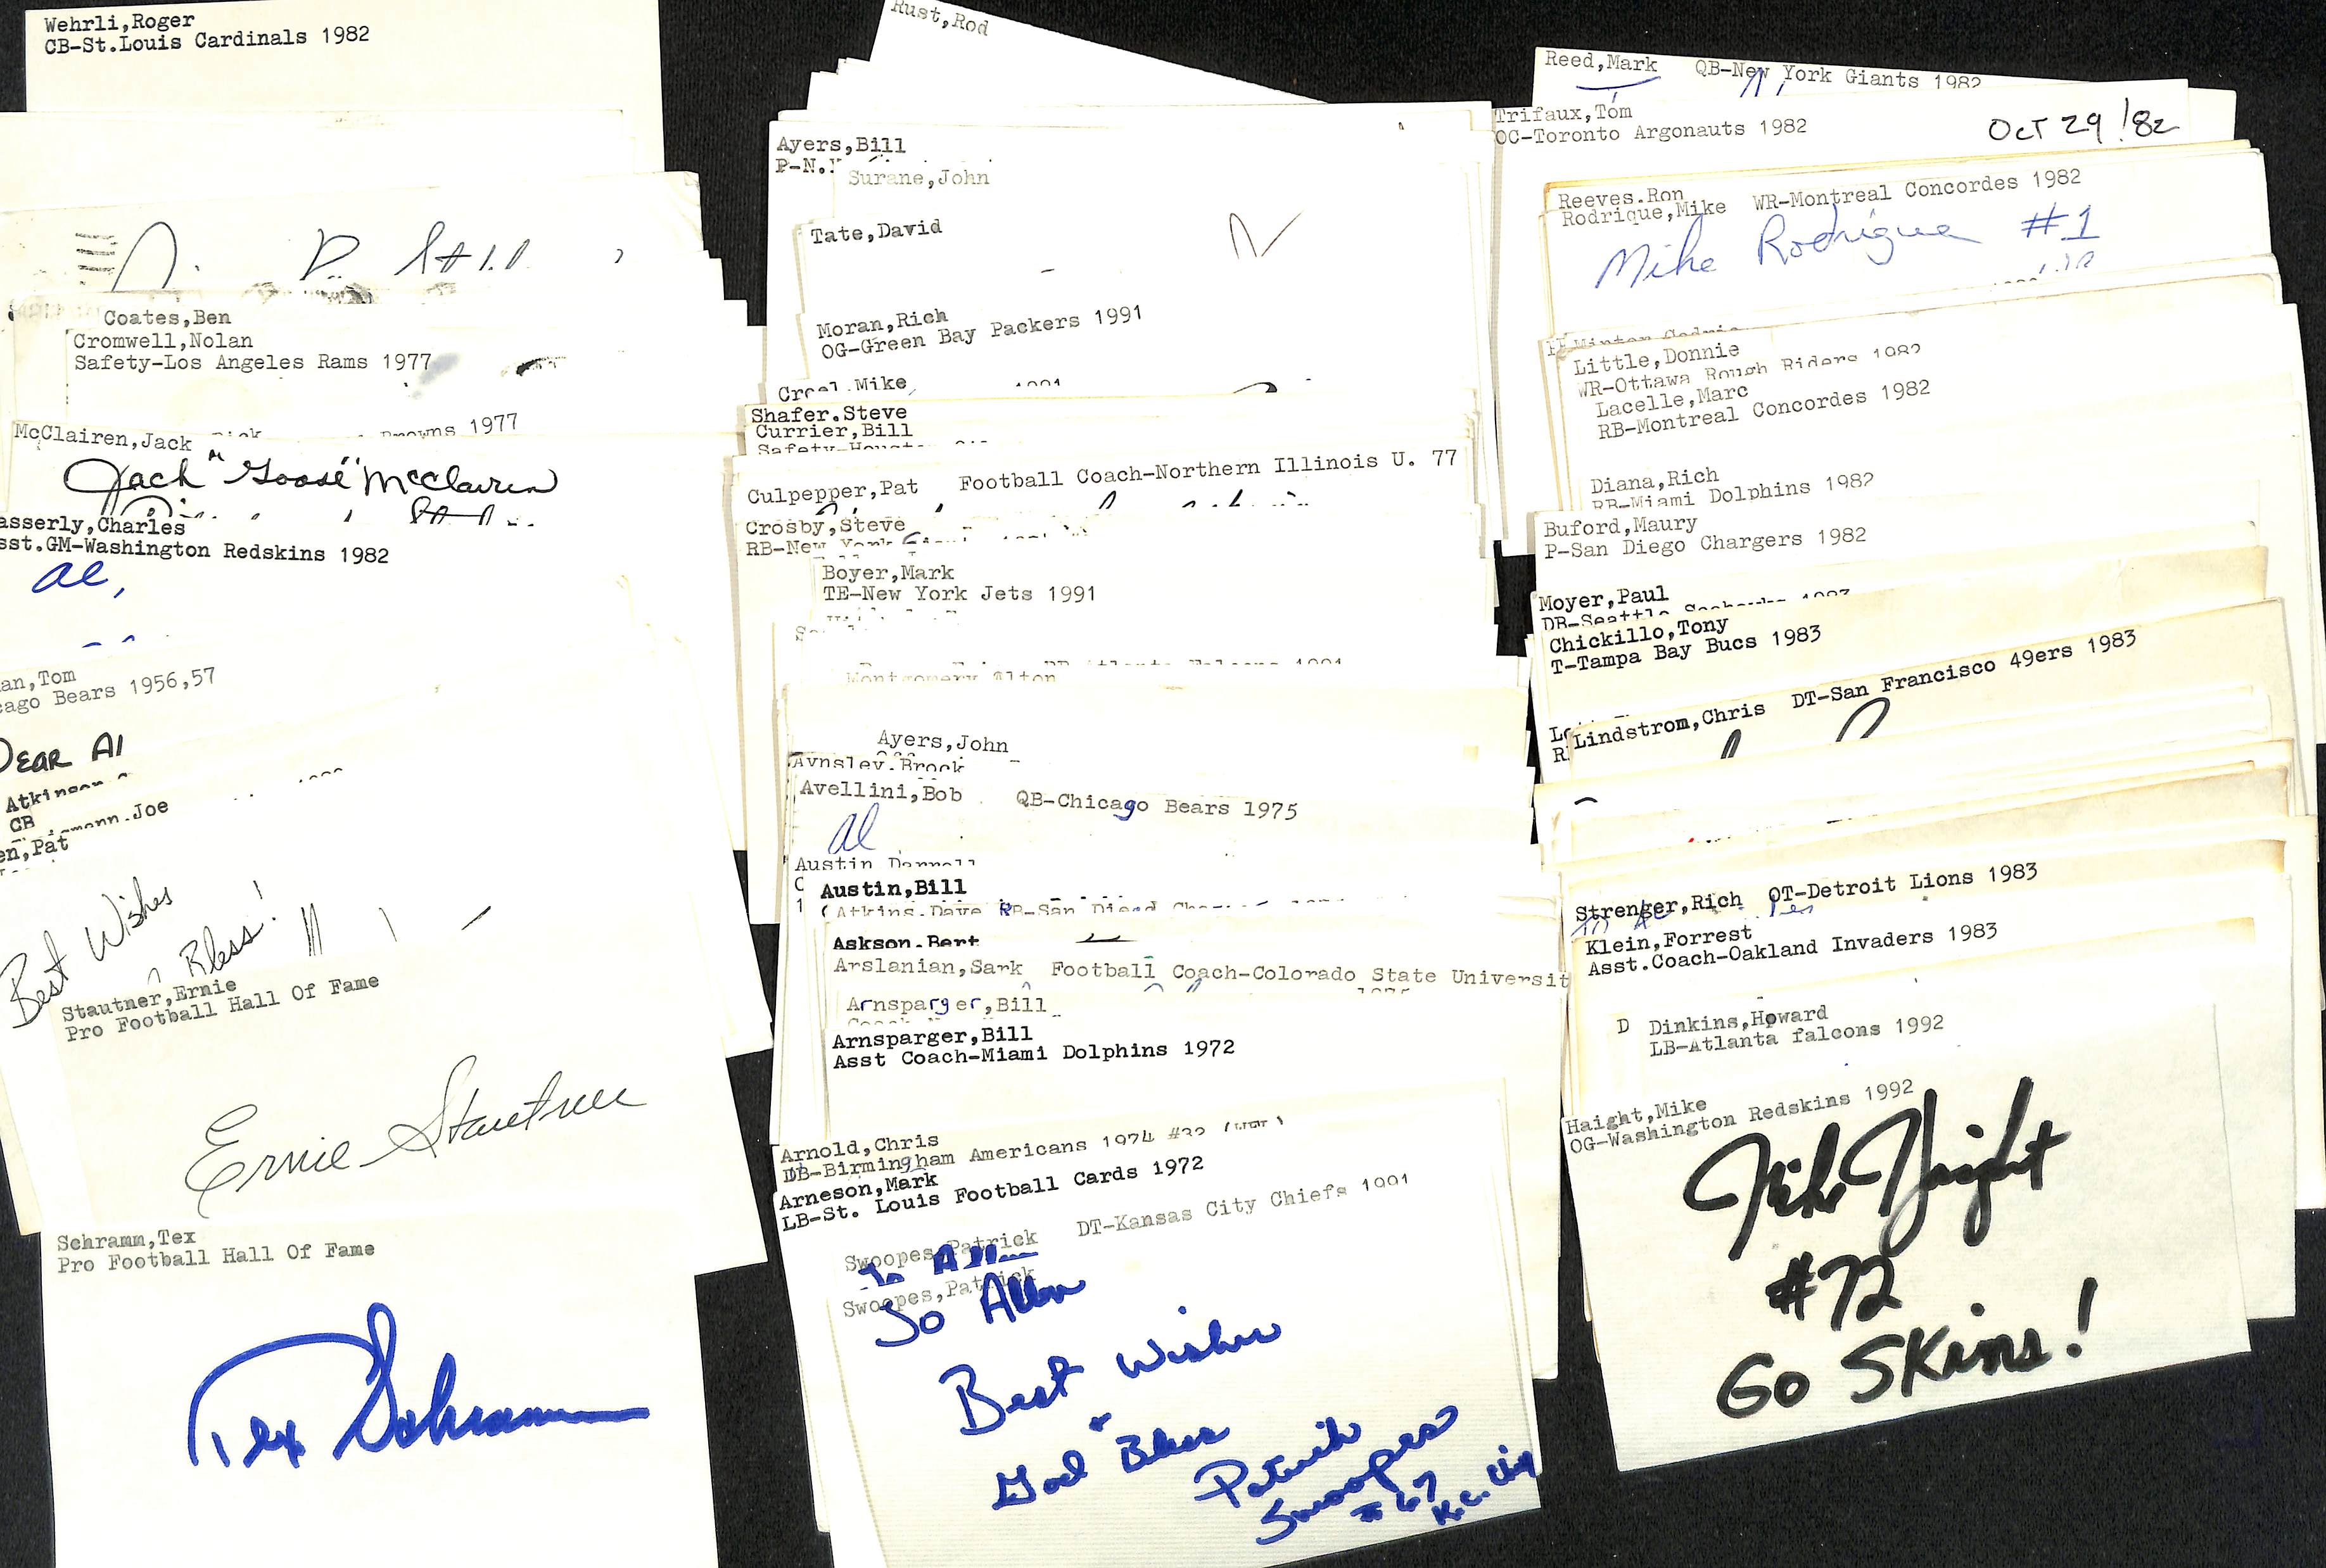 Wehrli,Roger
CB-St.Louis Cardinals 1982
Coates,Ben
Cromwell,Nolan
Safety-Los Angeles Rams 1977
Browns 1977
McClairen,Jack
Jack "Goose" McClairen
asserly,Charles
sst.GM-Washington Redskins 1982
al,
an,Tom
cago Bears 1956,57
DEAR Al
Atkinson
CB
mann.Joe
en,Pat
Best Wishes
Bless!
Stautner,Ernie
Pro Football Hall Of Fame
Ernie Stautner
Schramm,Tex
Pro Football Hall Of Fame
Tex Schramm
Rust,Rod
Ayers,Bill
P-N.Y
Surane,John
Tate,David
Moran,Rich
OG-Green Bay Packers 1991
Croel.Mike 1991
Shafer.Steve
Currier,Bill
Safety-Houst
Culpepper,Pat Football Coach-Northern Illinois U. 77
Crosby,Steve
RB-New York
Boyer,Mark
TE-New York Jets 1991
Montgomery Alton
Ayers,John
Aynsley.Brock
Avellini,Bob QB-Chicago Bears 1975
al
Austin Darrell
Austin,Bill
Atkins.Dave RB-San Diego
Askson.Bert
Arslanian,Sark Football Coach-Colorado State Universit
Arnsparger,Bill
Arnsparger,Bill
Asst Coach-Miami Dolphins 1972
Arnold,Chris
DB-Birmingham Americans 1974 #32
Arneson,Mark
LB-St. Louis Football Cards 1972
Swoopes,Patrick DT-Kansas City Chiefs 1991
Swoopes,Patrick
To Allen
Best Wishes
God Bless
Patrick
Swoopes
#67
K.C.
Reed,Mark QB-New York Giants 1982
Trifaux,Tom
OC-Toronto Argonauts 1982
Oct 29 '82
Reeves.Ron
Rodrique,Mike WR-Montreal Concordes 1982
Mike Rodrigue #1
Little,Donnie
WR-Ottawa Rough Riders 1982
Lacelle,Marc
RB-Montreal Concordes 1982
Diana,Rich
RB-Miami Dolphins 1982
Buford,Maury
P-San Diego Chargers 1982
Moyer,Paul
DB-Seattle Seahawks 1983
Chickillo,Tony
T-Tampa Bay Bucs 1983
Lindstrom,Chris DT-San Francisco 49ers 1983
Strenger,Rich OT-Detroit Lions 1983
Klein,Forrest
Asst.Coach-Oakland Invaders 1983
D Dinkins,Howard
LB-Atlanta falcons 1992
Haight,Mike
OG-Washington Redskins 1992
Mike Haight
#72
GO SKins!